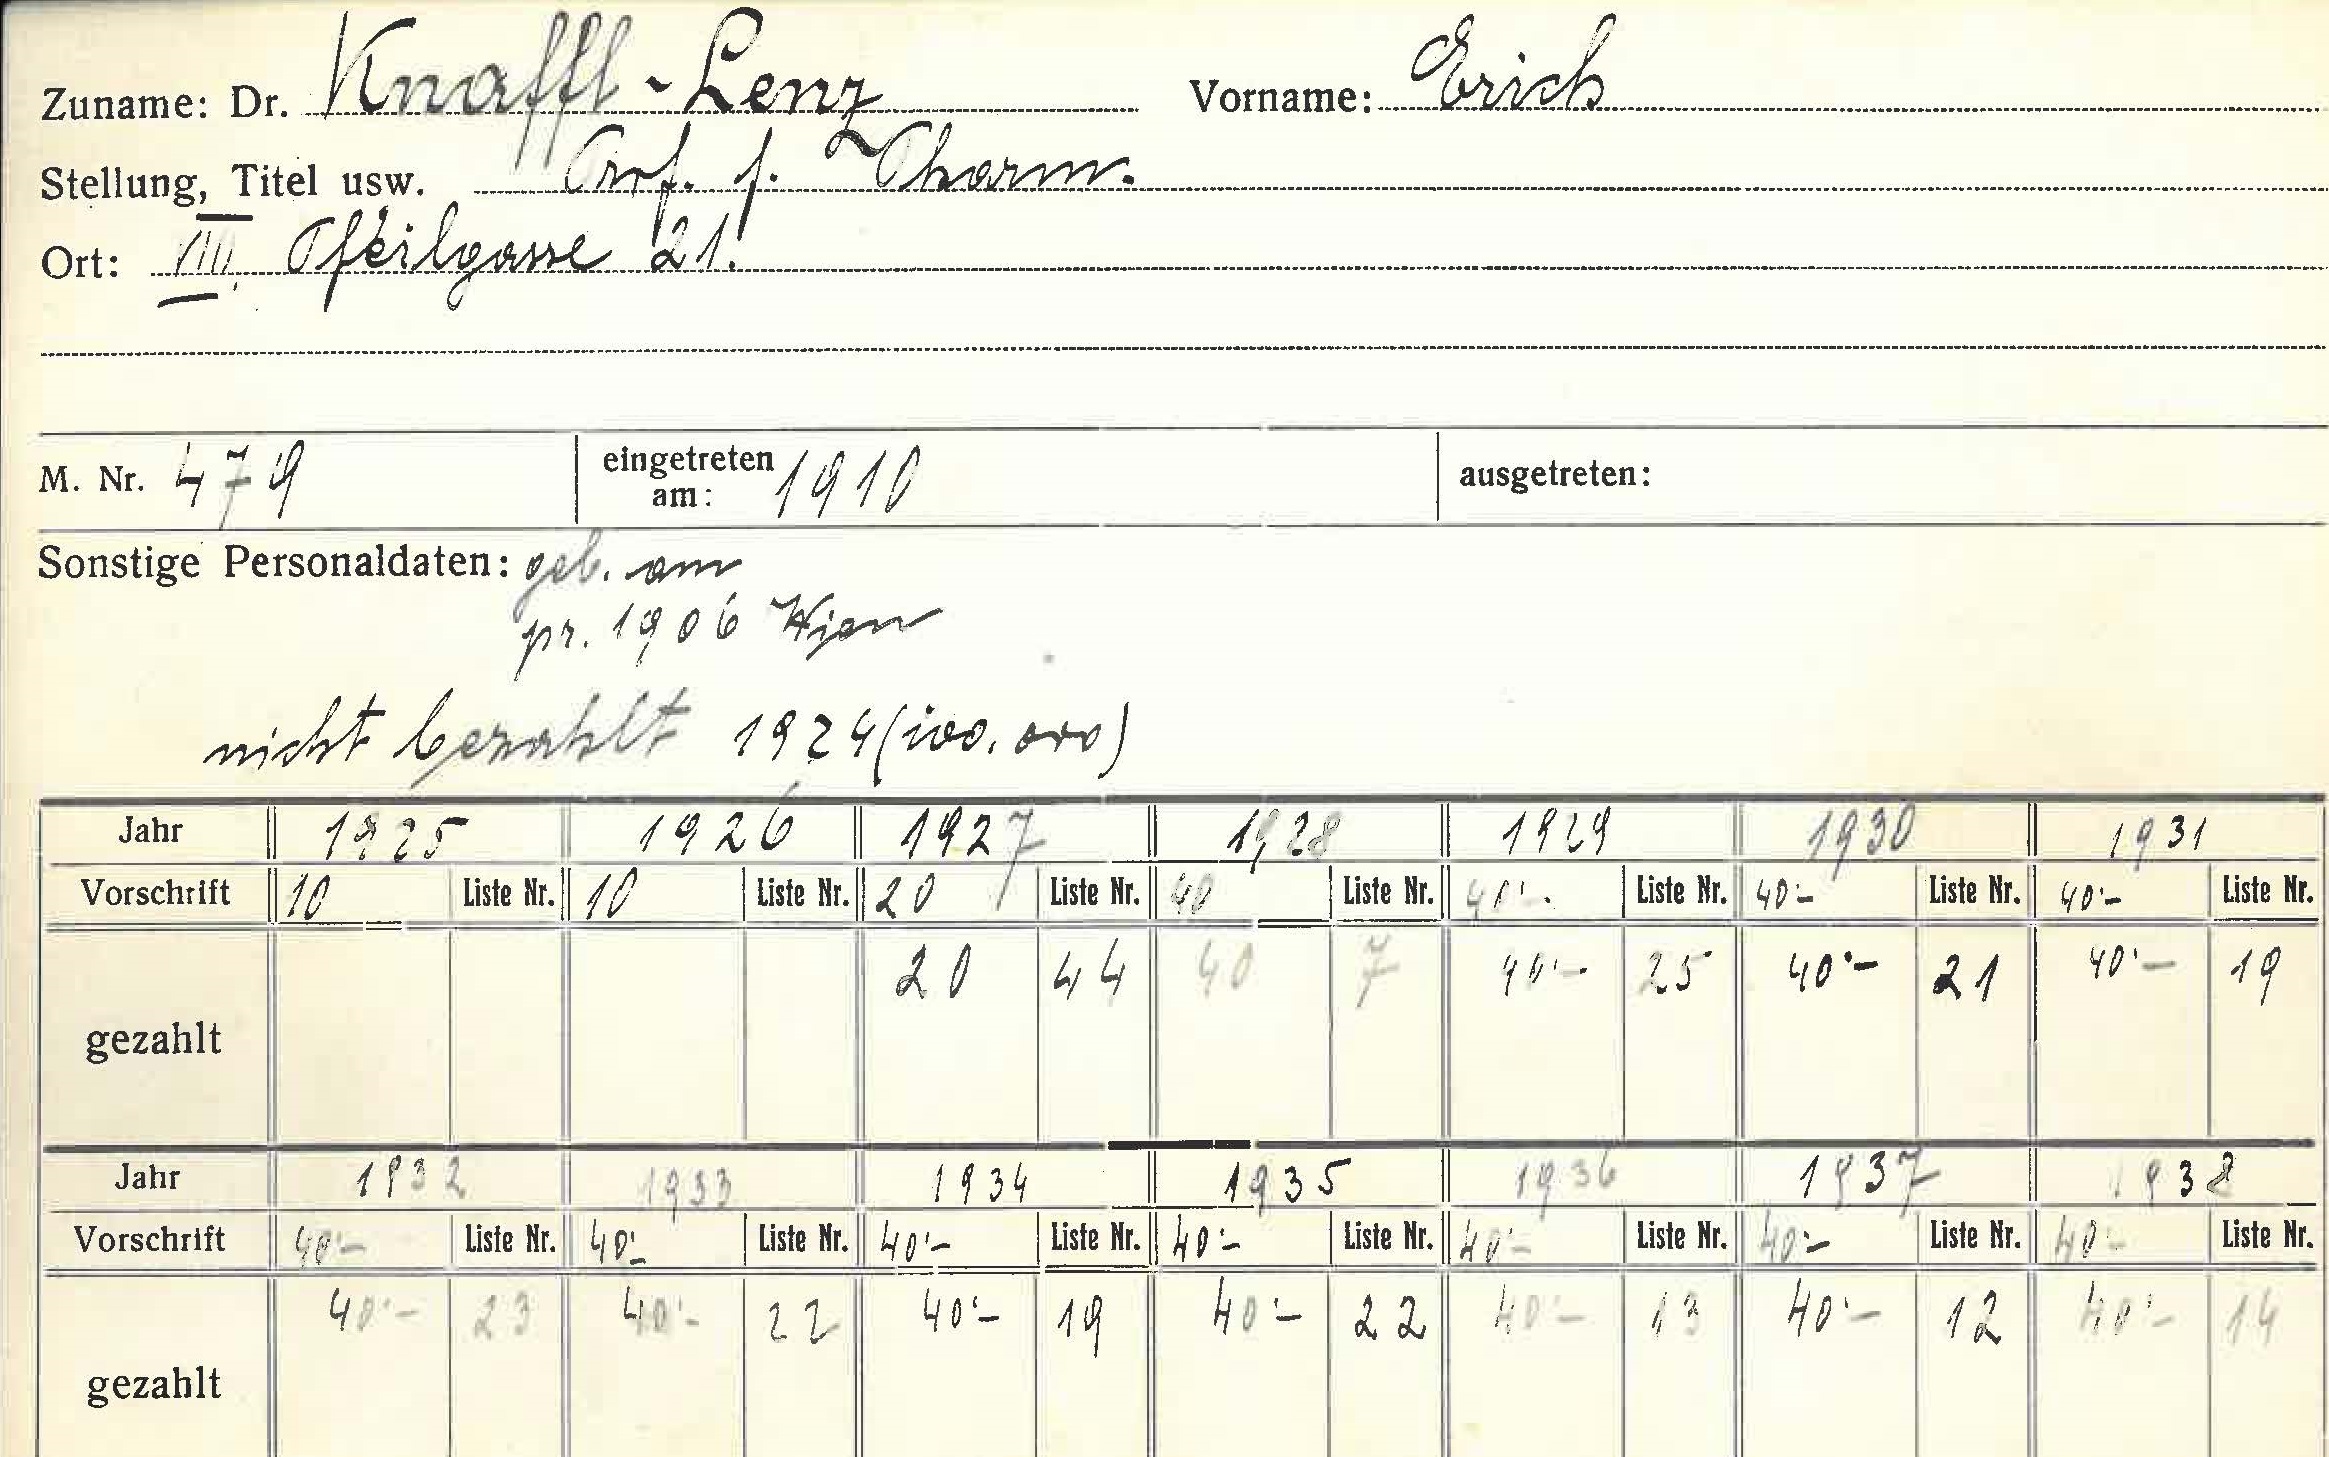 Zuname: Dr. Knaffl-Lenz Vorname: Erich
Stellung, Titel usw. Prof. f. Pharm.
Ort: VIII. Pfeilgasse 21.
M. Nr. 479 eingetreten am: 1910 ausgetreten:
Sonstige Personaldaten: geb. am
pr. 1906 Wien
nicht bezahlt 1924 (100.000)
Jahr 1925 1926 1927 1928 1929 1930 1931
Vorschrift 10 Liste Nr. 10 Liste Nr. 20 Liste Nr. 40 Liste Nr. 40'- Liste Nr. 40'- Liste Nr. 40'- Liste Nr.
gezahlt 20 44 40 7 40'- 25 40'- 21 40'- 19
Jahr 1932 1933 1934 1935 1936 1937 1938
Vorschrift 40'- Liste Nr. 40'- Liste Nr. 40'- Liste Nr. 40'- Liste Nr. 40'- Liste Nr. 40'- Liste Nr. 40'- Liste Nr.
gezahlt 40'- 23 40'- 22 40'- 19 40'- 22 40'- 13 40'- 12 40'- 14